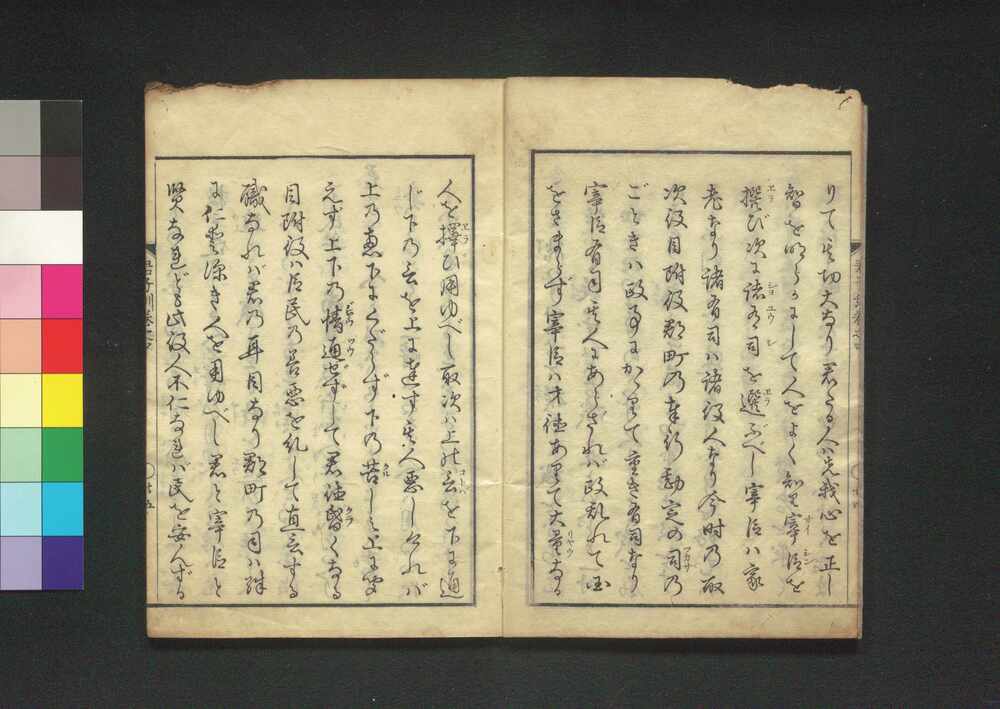 りて其功大なり君たる人ハ先我心を正し
智を明らかにして人をよく知り宰臣を
撰び次に諸有司を選ぶべし宰臣ハ家
老なり諸有司ハ諸役人なり今時乃取
次役目附役郡町乃奉行勘定の司乃
ごときハ政事にかゝりて重き有司なり
宰臣有司其人にあらざれバ政乱れて国
をさまらず宰臣ハ才徳ありて大量なる
人を擇び用ゆべし取次ハ上の言を下に通
じ下乃言を上に達す其人悪しけれバ
上乃恵下にくだらず下乃苦しミ上に聞
えず上下乃情通ぜずして君徳昏くなる
目附役ハ臣民乃善悪を糺して直言する
職なれバ君乃耳目なり郡町乃司ハ殊
に仁愛深き人を用ゆべし君と宰臣と
賢なれども此役人不仁なれバ民を安んずる